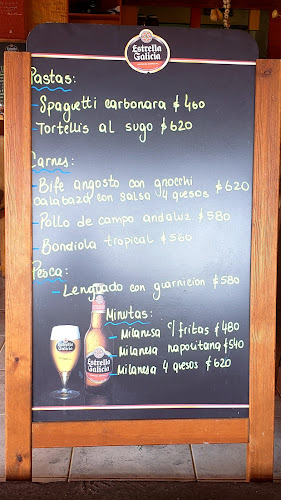 Estrella
Galicia
Pastas:
- Spaguetti carbonara $460
- Tortellis al sugo $620
Carnes:
- Bife angosto con gnocchi
calabaza con salsa 4 quesos $620
- Pollo de campo andaluz $580
- Bondiola tropical $560
Pesca:
- Lenguado con guarnicion $580
Minutas:
- Milanesa c/fritas $480
- Milanesa napolitana $540
- Milanesa 4 quesos $620
Estrella
Galicia